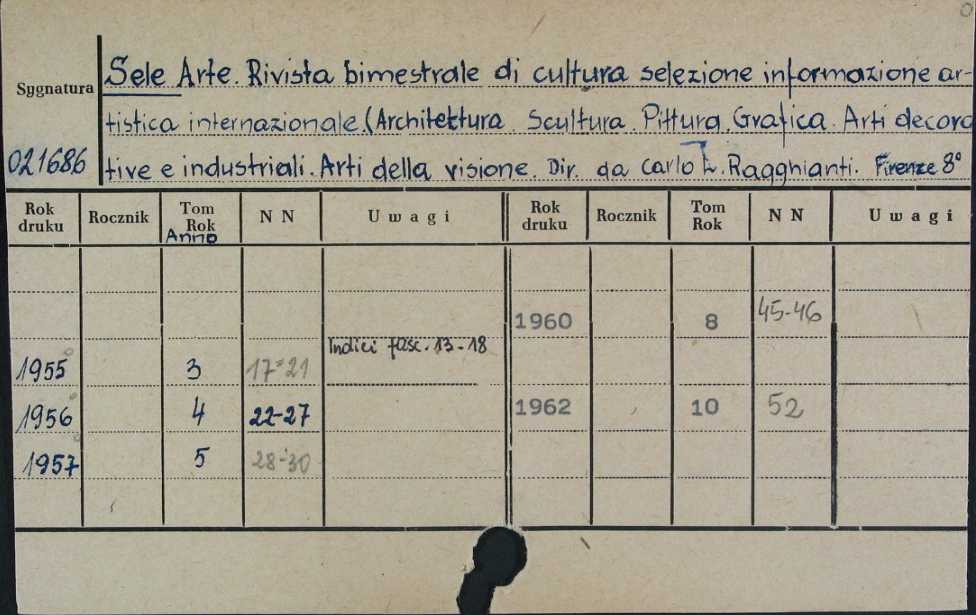 Sygnatura
021686
Sele Arte. Rivista bimestrale di cultura selezione informazione ar-
tistica internazionale.(Architettura. Scultura. Pittura. Grafica. Arti decora
tive e industriali. Arti della visione. Dir. da Carlo L. Ragghianti. Firenze 8°
Rok druku Rocznik Tom Rok Anno N N Uwagi Rok druku Rocznik Tom Rok N N Uwagi
1960 8 45-46
Indici fasc. 13-18
1955 3 17-21
1956 4 22-27 1962 10 52
1957 5 28-30